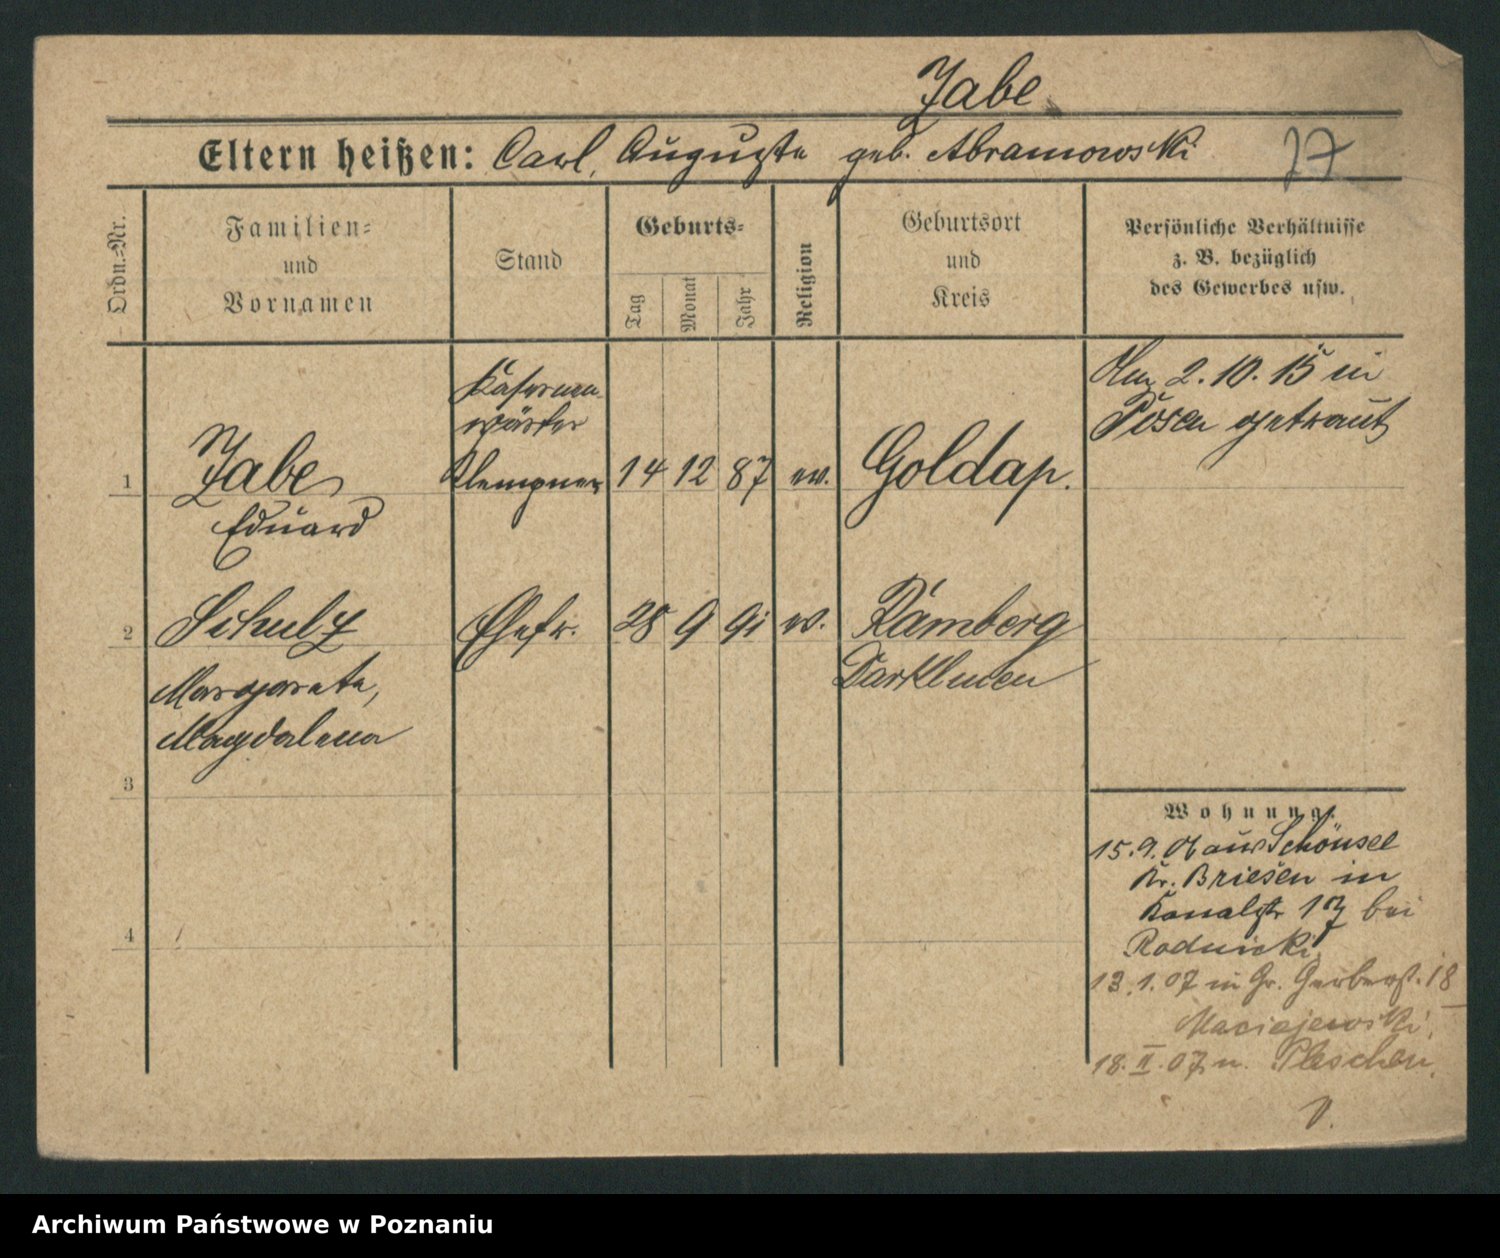 Jabe
Eltern heißen: Carl, Auguste geb. Abramowski
Ordn.-Nr.
Familien- und Vornamen
Stand
Geburts-
Tag
Monat
Jahr
Religion
Geburtsort und Kreis
Persönliche Verhältnisse z. B. bezüglich des Gewerbes usw.
Am 2.10.15 in
Posen getraut
Kasernen-
wärter
1 Jabe Klempner 14 12 87 ev. Goldap.
Eduard
2 Schulz Ehefr. 28 9 91 ev.
Darkehmen
Margarete,
Magdalena
3
Wohnung.
15.9. aus Schönsee
Kr. Briesen in
4 Kanalstr 17 bei
Radnicki
13.1.07 in Gr. Gerberst. 18
Maciejewski.
18.II.07 n. Pleschen.
Archiwum Państwowe w Poznaniu